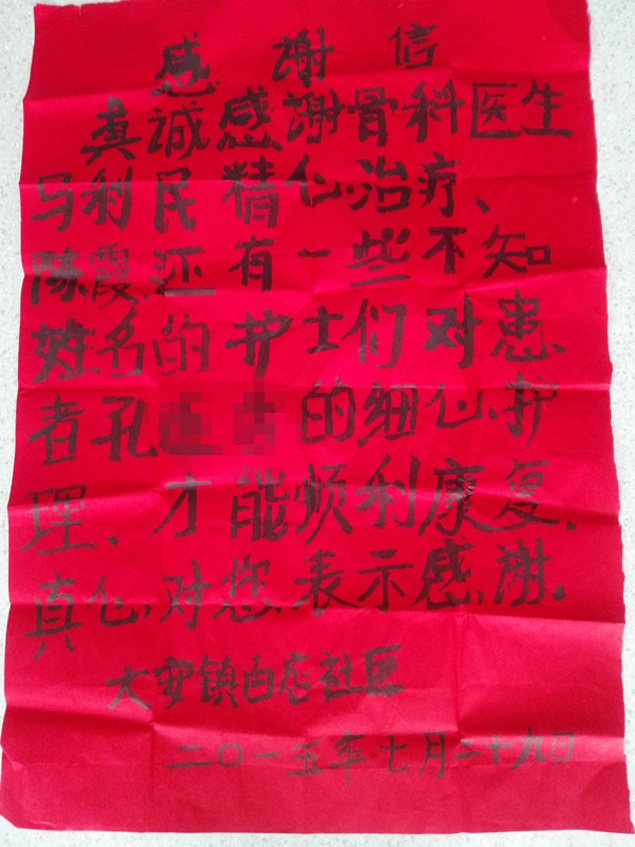 感谢信
真诚感谢骨科医生
马利民精心治疗、
陈霞还有一些不知
姓名的护士们对患
者孔 的细心护
理.才能顺利康复.
真心对您表示感谢。
大安镇白店社区
二〇一五年七月二十九日